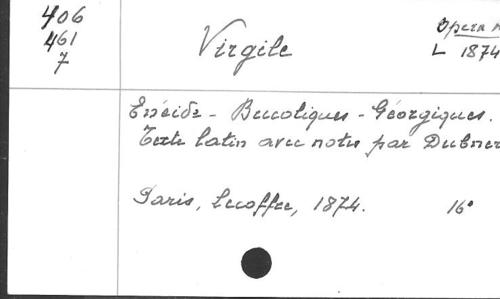 406
461
7
Virgile
Opera
L 1874
Enéide - Bucoliques - Géorgiques.
Texte latin avec notes par Dubner
Paris, Lecoffre, 1874. 16°